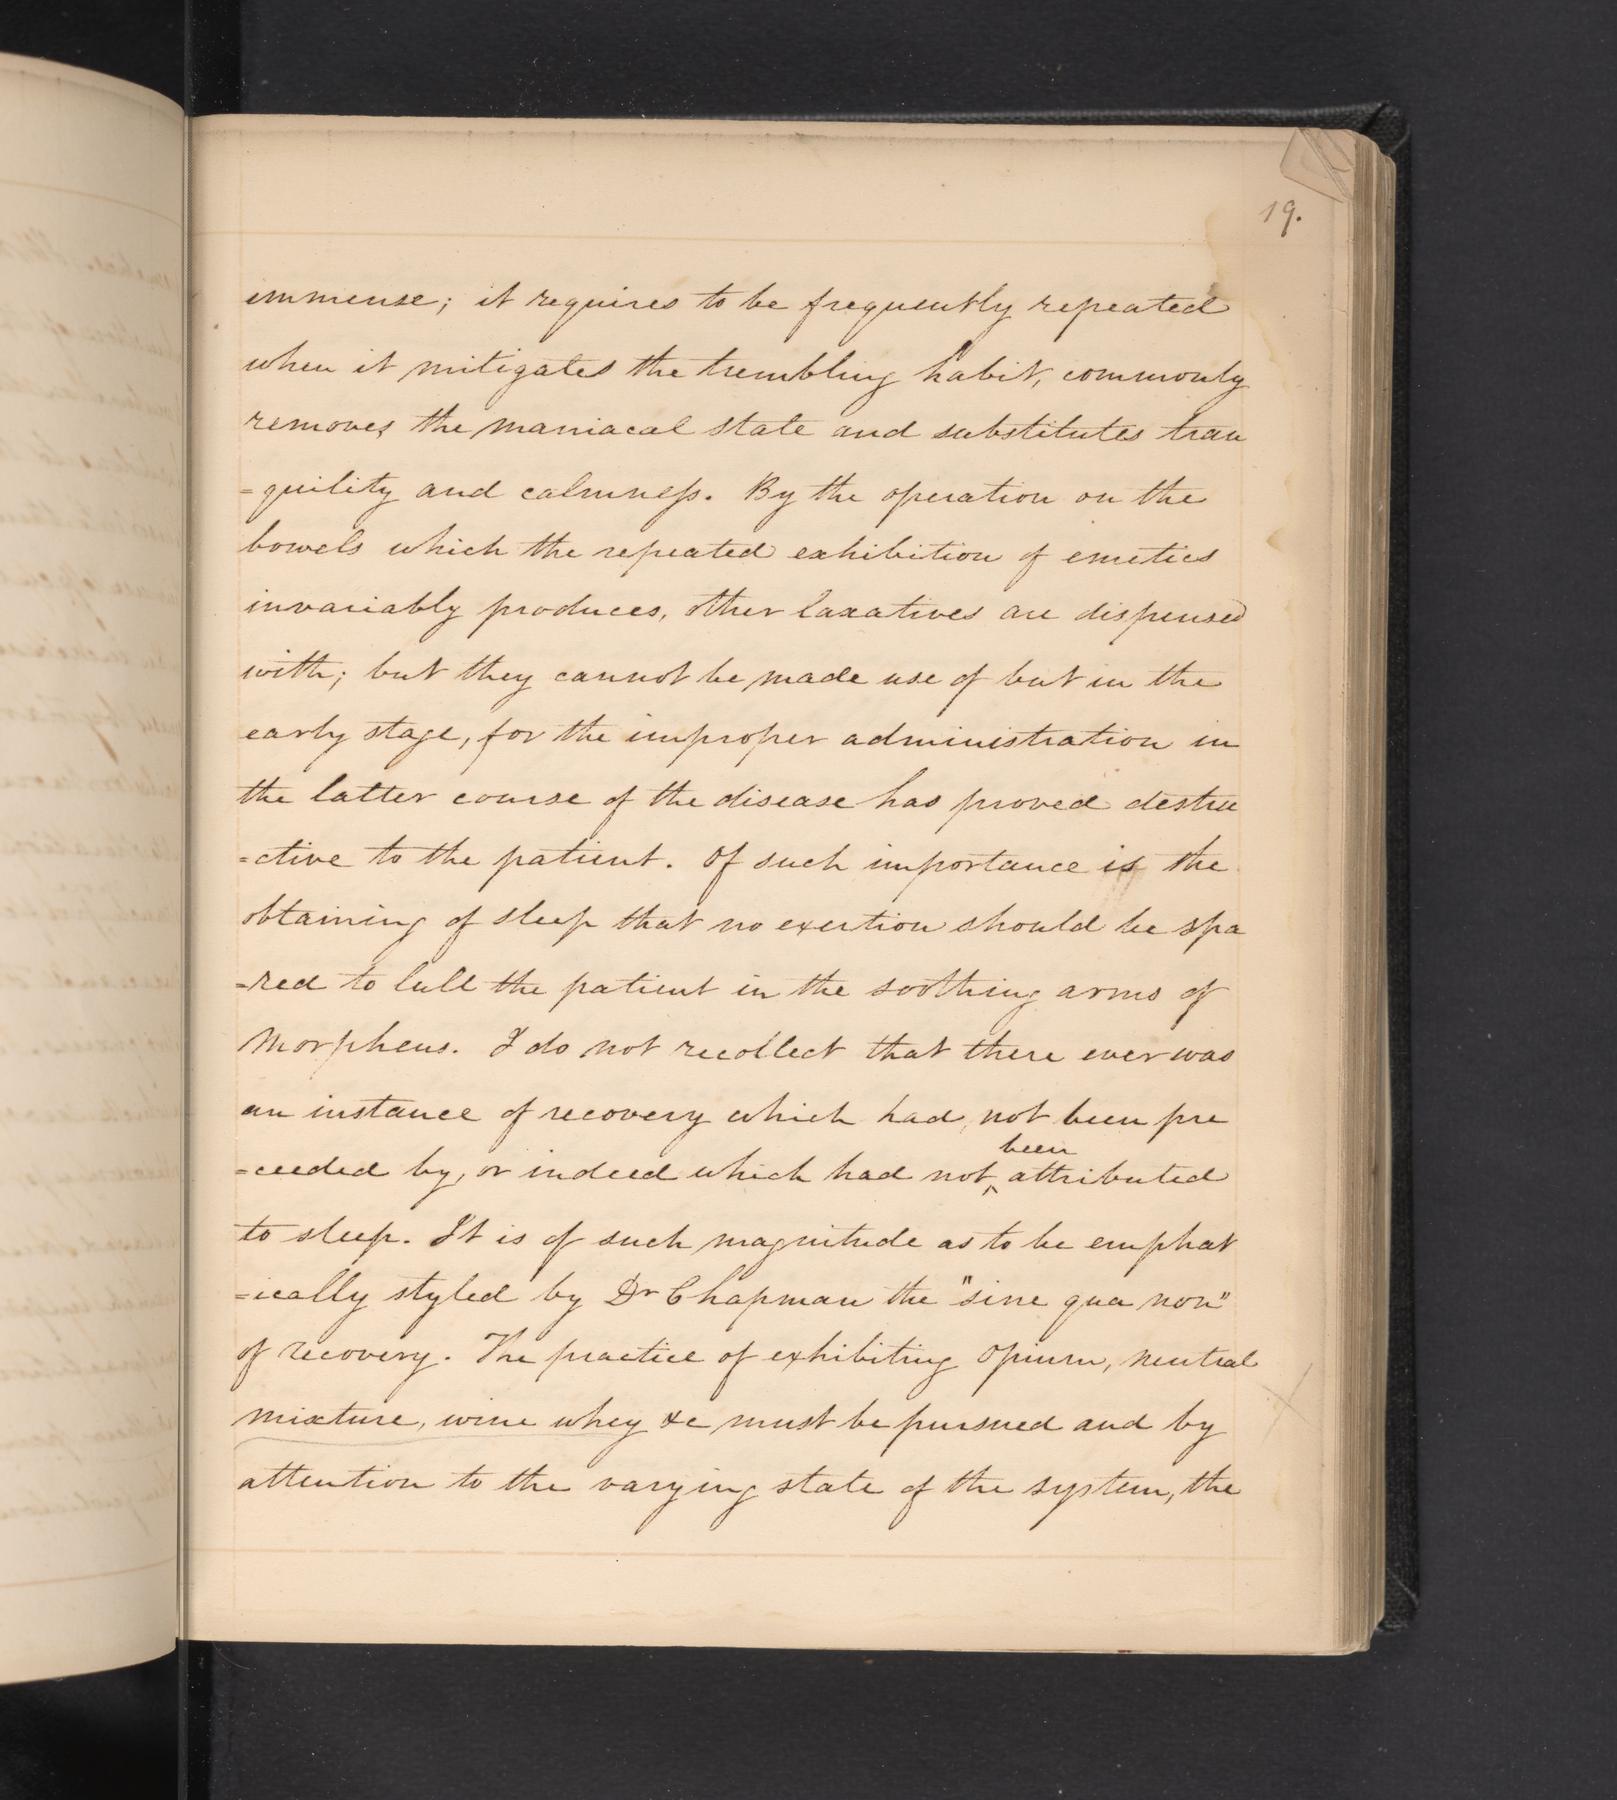 19.
immense; it requires to be frequently repeated
when it mitigates the trembling habit, commonly
removes the maniacal state and substitutes tran
=quility and calmness. By the operation on the
bowels which the repeated exhibition of emetics
invariably produces, other laxatives are dispensed
with; but they cannot be made use of but in the
early stage, for the improper administration in
the latter course of the disease has proved destru
=ctive to the patient. Of such importance is the
obtaining of sleep that no exertion should be spa
=red to lull the patient in the soothing arms of
Morpheus. I do not recollect that there ever was
an instance of recovery which had not been pre
=ceeded by, or indeed which had not been attributed
to sleep. It is of such magnitude as to be emphat
=ically styled by Dr Chapman the "sine qua non"
of recovery. The practice of exhibiting Opium, neutral
mixture, wine whey &c must be pursued and by
attention to the varying state of the system, the